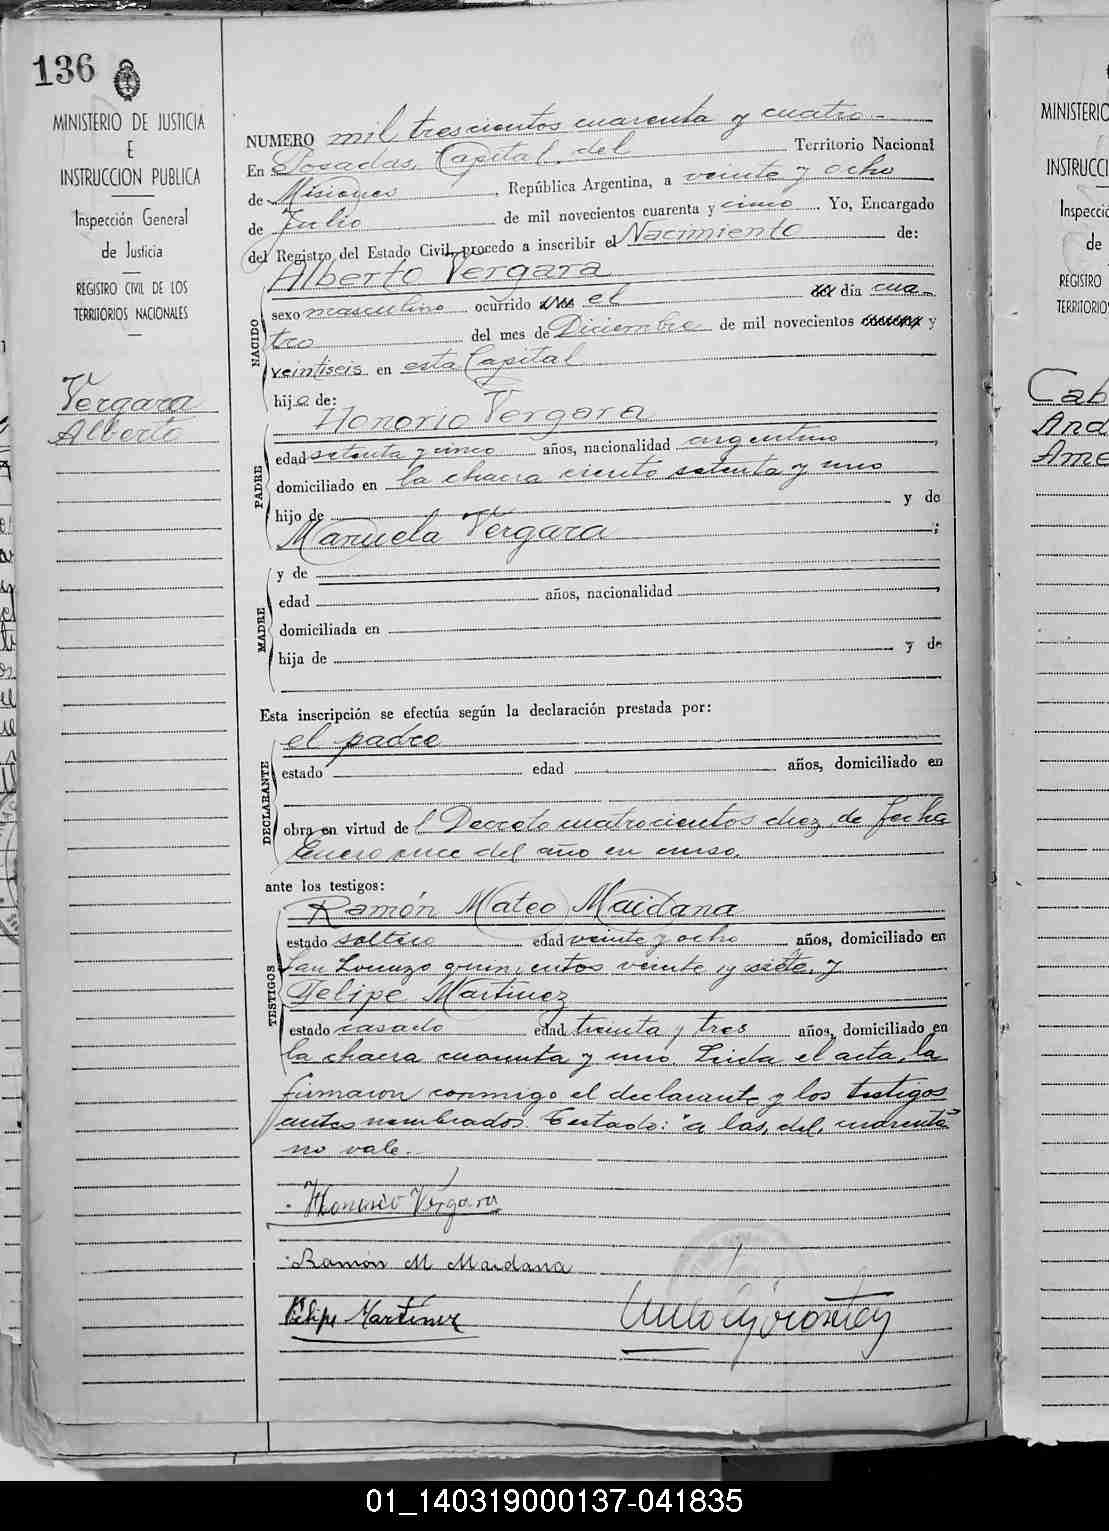 136
MINISTERIO DE JUSTICIA
E
INSTRUCCION PUBLICA
Inspección General
de Justicia
REGISTRO CIVIL DE LOS
TERRITORIOS NACIONALES
Vergara
Alberto
NUMERO mil trescientos cuarenta y cuatro.-
En Posadas, Capital, del Territorio Nacional
de Misiones, República Argentina, a veinte y ocho
de Julio de mil novecientos cuarenta y cinco. Yo, Encargado
del Registro del Estado Civil, procedo a inscribir el Nacimiento de:
NACIDO
Alberto Vergara
sexo masculino ocurrido el día cua-
tro del mes de Diciembre de mil novecientos y
veintiseis en esta Capital
hijo de:
PADRE
Honorio Vergara
edad setenta y cinco años, nacionalidad argentino,
domiciliado en la chacra ciento setenta y uno
hijo de y de
Manuela Vergara;
MADRE
y de
edad años, nacionalidad,
domiciliada en
hija de y de
Esta inscripción se efectúa según la declaración prestada por:
DECLARANTE
el padre
estado edad años, domiciliado en
obra en virtud del Decreto cuatrocientos diez de fecha
Enero once del año en curso.
ante los testigos:
TESTIGOS
Ramón Mateo Maidana
estado soltero edad veinte y ocho años, domiciliado en
San Lorenzo quinientos veinte y siete y
Felipe Martinez
estado casado edad treinta y tres años, domiciliado en
la chacra cuarenta y uno. Leida el acta, la
firmaron conmigo el declarante y los testigos
antes nombrados. Testado: "a las, del, cuarenta"
no vale.-
Honorio Vergara
Ramón M Maidana
Felipe Martinez
MINISTERIO
INSTRUCCI
Inspecció
de
REGISTRO
TERRITORIO
Cab
And
Ame
01_140319000137-041835